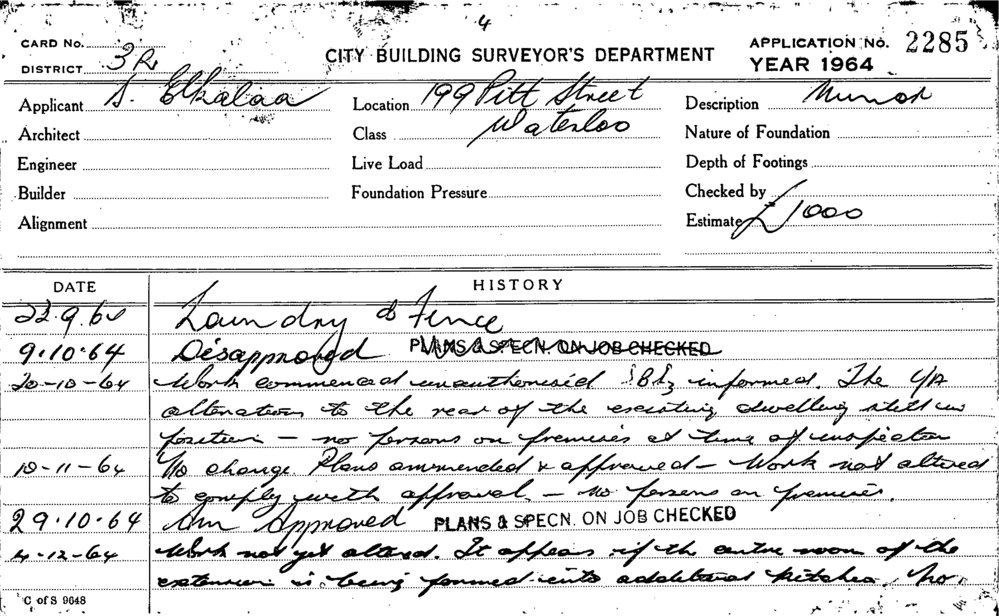 4
CARD No.
DISTRICT 3R
CITY BUILDING SURVEYOR'S DEPARTMENT
APPLICATION No. 2285
YEAR 1964
Applicant S. Elkalaa
Location 199 Pitt Street
Description Minor
Architect
Class Waterloo
Nature of Foundation
Engineer
Live Load
Depth of Footings
Builder
Foundation Pressure
Checked by
Alignment
Estimate £1000
DATE HISTORY
22.9.64 Laundry & Fence
9.10.64 Disapproved PLANS & SPECN. ON JOB CHECKED
20-10-64 Work commenced unauthorisid informed. The U/A
alterations to the rear of the existing dwelling still in
position – no persons on premises at time of inspection
10-11-64 No change. Plans ammended & approved – Work not altered
to comply with approval. – no persons on premises.
29.10.64 Am Approved PLANS & SPECN. ON JOB CHECKED
4-12-64 Work not yet altered. It appears if the centre room of the
extension is being formed into additional kitchen. No
C of S 9648